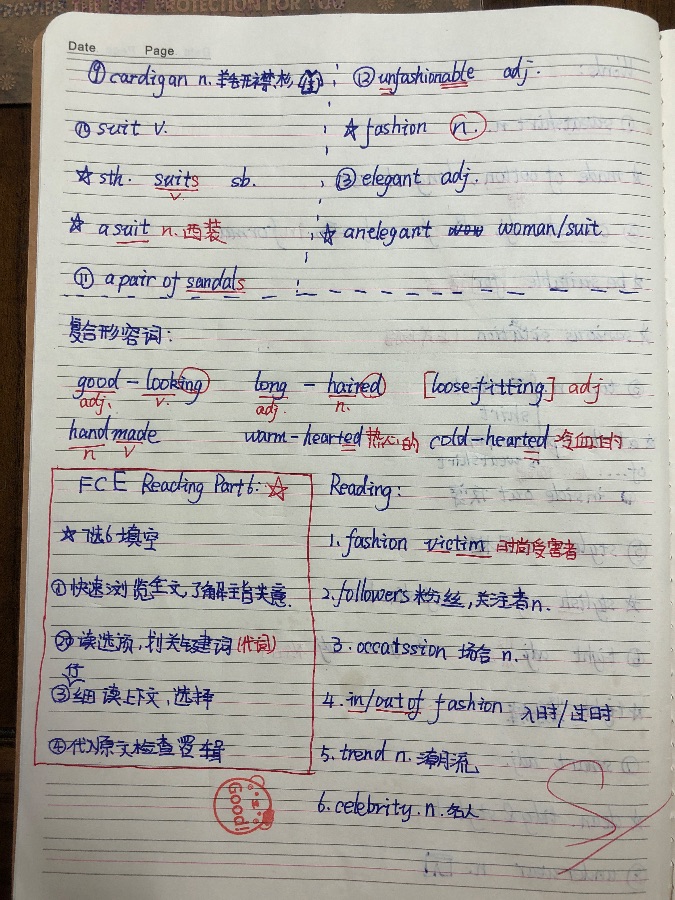 Date Page
⑨ cardigan n. 羊毛开襟衫
⑩ suit v.
☆ sth. suits sb.
v.
☆ a suit n. 西装
⑪ a pair of sandals
⑫ unfashionable adj.
☆ fashion n.
⑬ elegant adj.
☆ an elegant woman/suit
复合形容词:
good-looking long-haired [loose-fitting] adj
adj. v. adj. n.
handmade warm-hearted 热心的 cold-hearted 冷血的
n v
FCE Reading Part 6: ☆
☆ 7选6填空
① 快速浏览全文,了解主旨大意.
② 读选项,划关键建词(代词)
③ 仔细读上下文,选择
④ 代入原文检查逻辑
Good!
Reading:
1. fashion victim 时尚受害者
2. followers 粉丝,关注者n.
3. occatssion 场合 n.
4. in/out of fashion 入时/过时
5. trend n. 潮流
6. celebrity. n. 名人